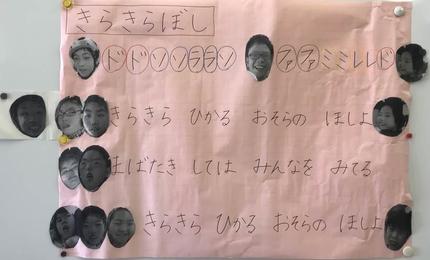 きらきらぼし
ドドソソララソ ファファミミレレド
きらきら ひかる おそらの ほしよ
まばたき しては みんなを みてる
きらきら ひかる おそらの ほしよ